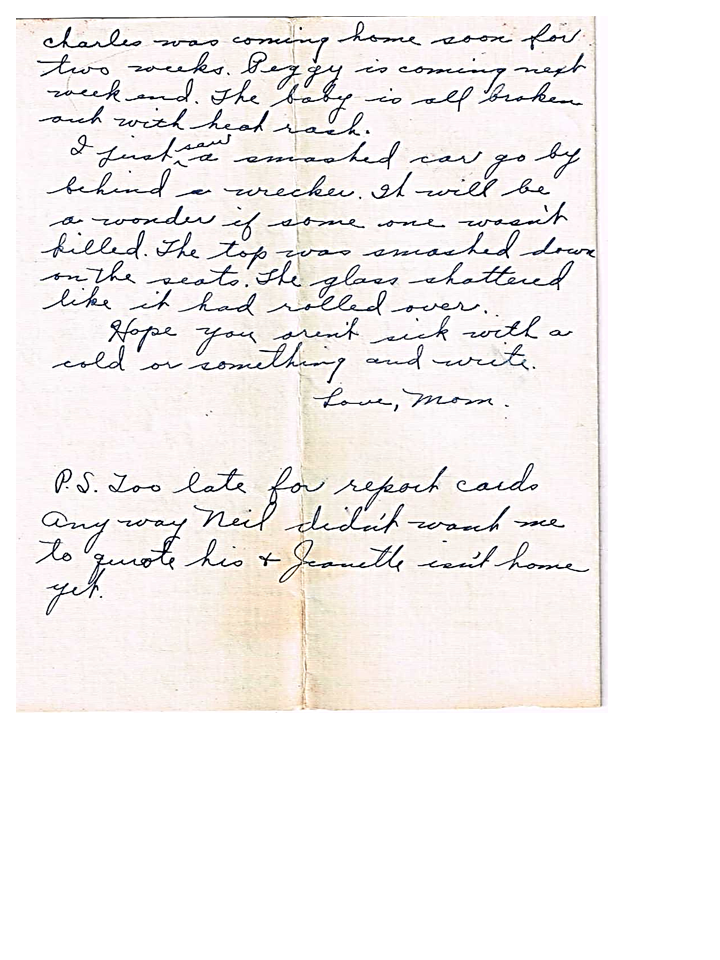 charles was coming home soon for
two weeks. Peggy is coming next
week end. The baby is all broken
out with heat rash.
I just saw a smashed car go by
behind a wrecker. It will be
a wonder if some one wasn't
killed. The top was smashed down
on the seats. The glass shattered
like it had rolled over.
Hope you aren't sick with a
cold or something and write.
Love, Mom.
P.S. Too late for report cards
Any way Neil didn't want me
to quote his + Jeanette isn't home
yet.